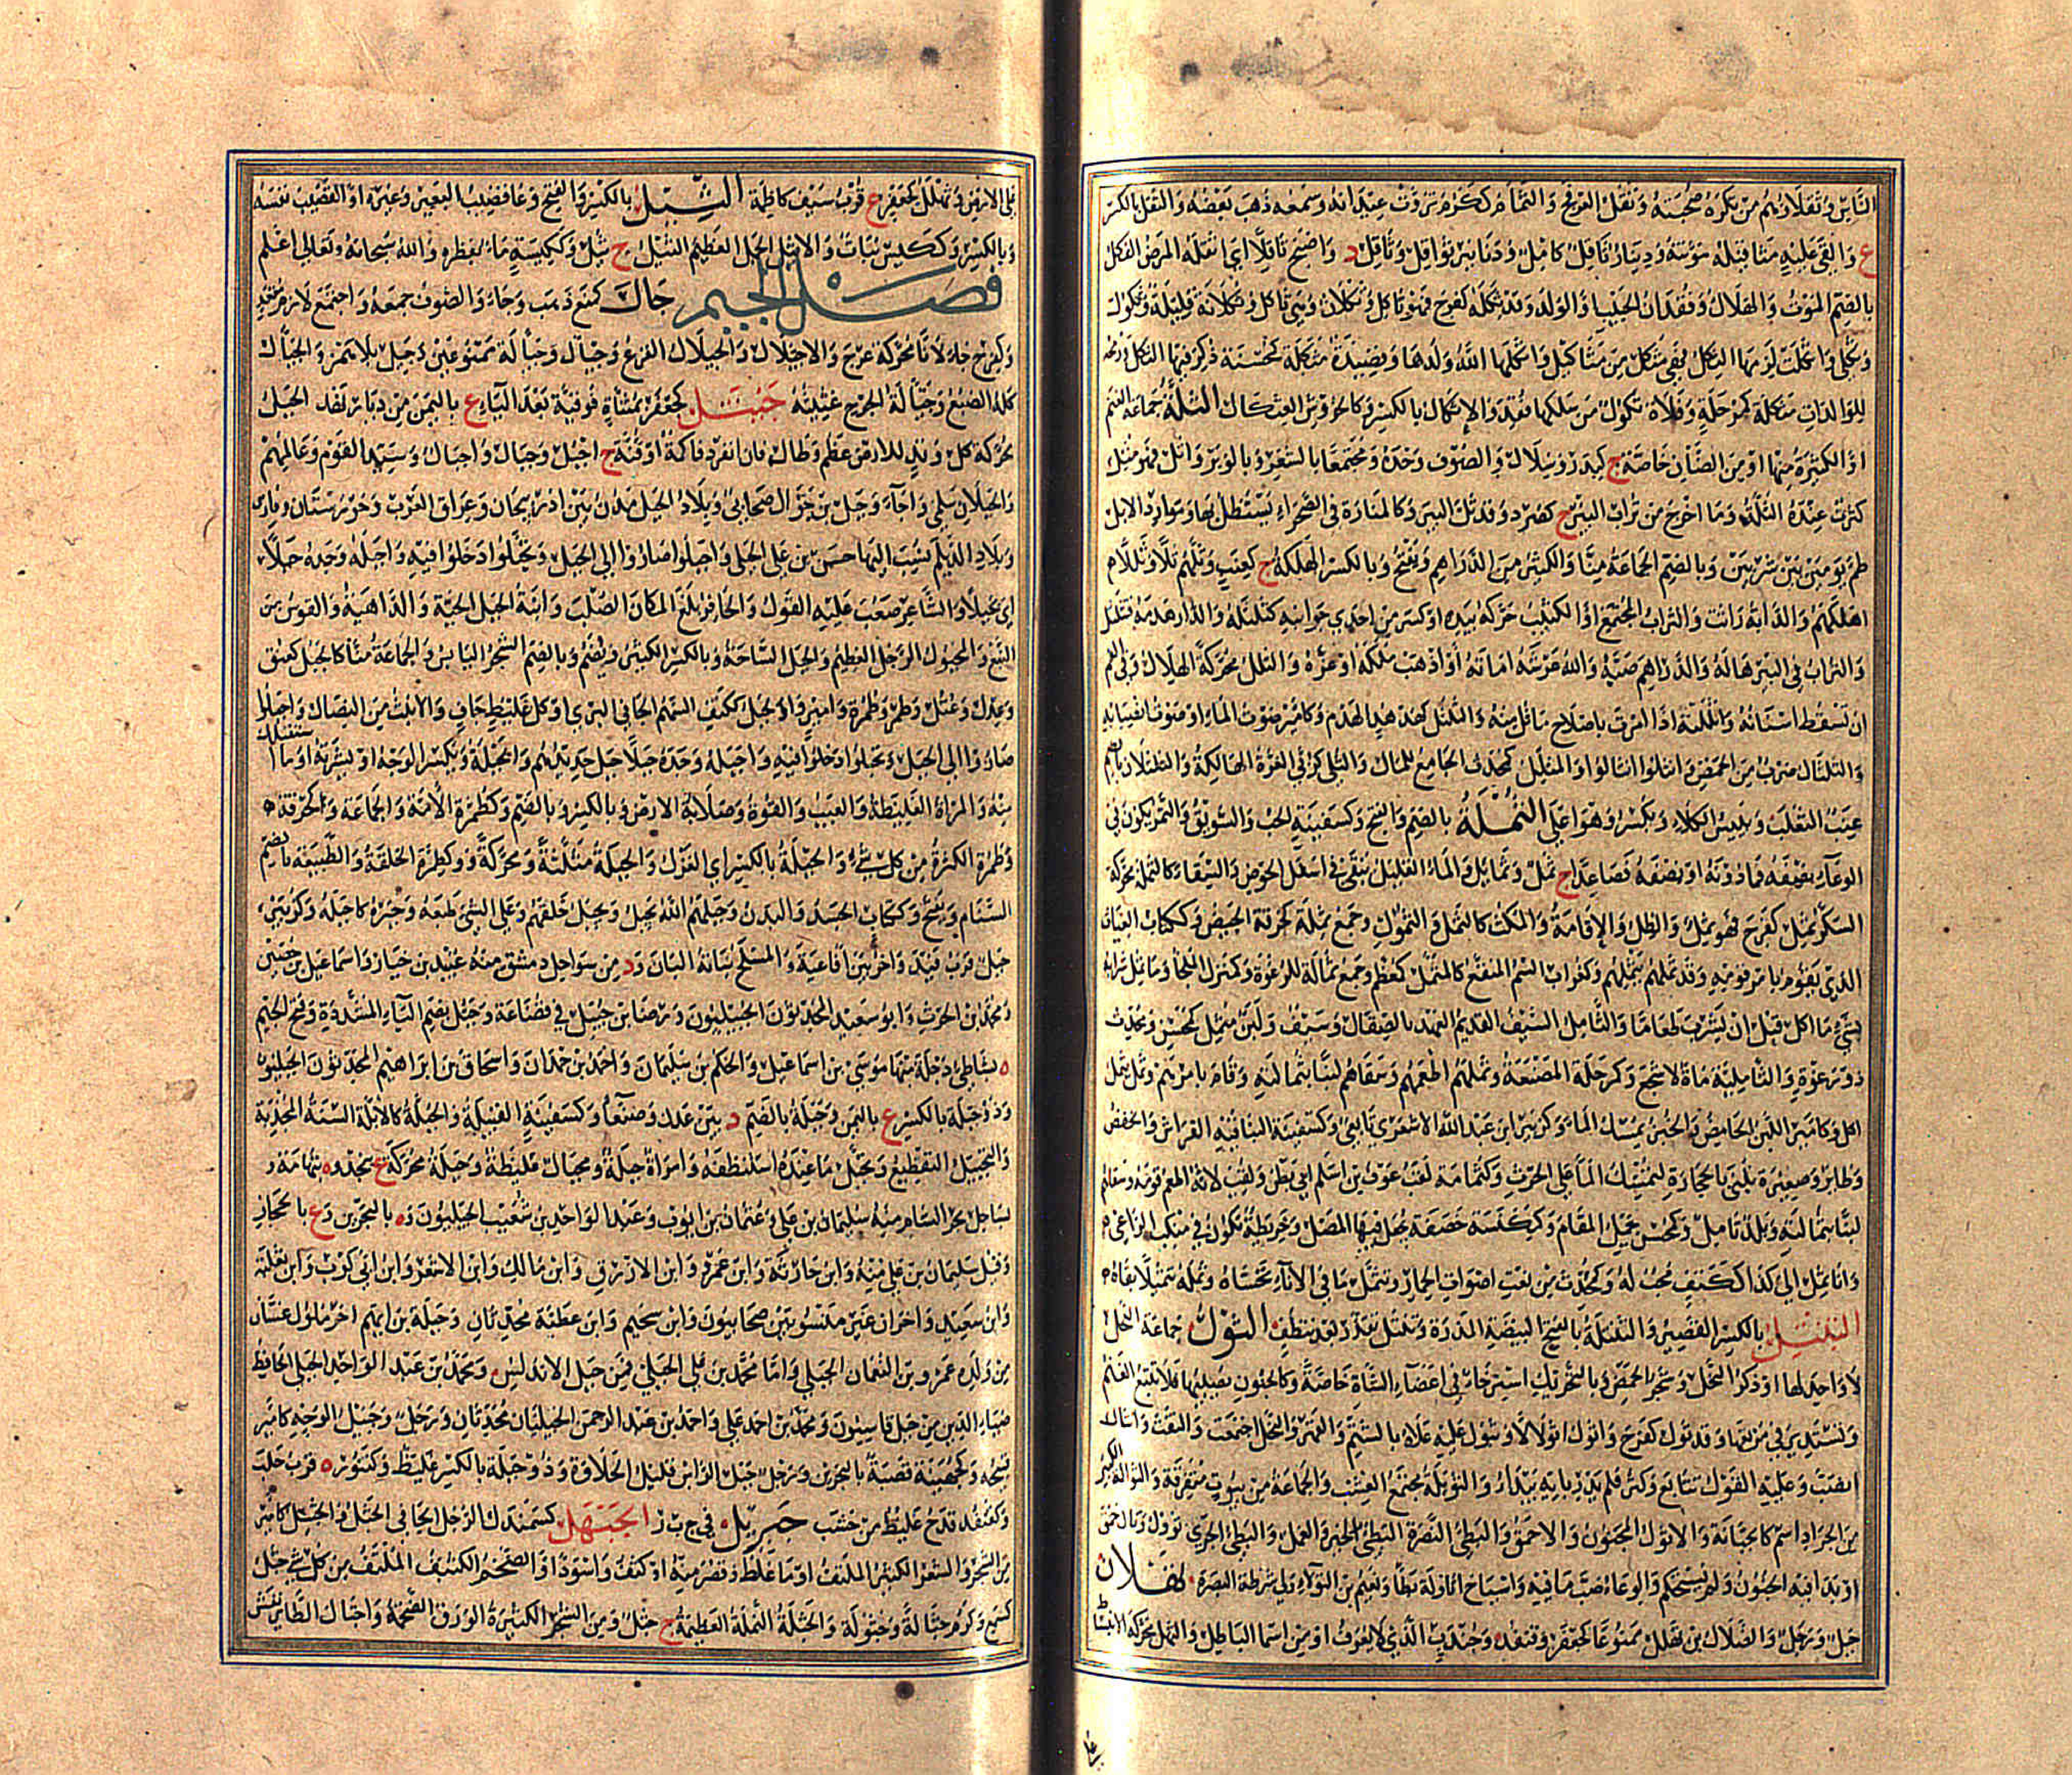 الناس وثقلاؤهم من تكره صحبته وثقل العرفج والثمام ككرم تروت عيدانه وسمعه ذهب بعضه والثقل بالكسر
ع والقى عليه مثاقيله مؤنته ودينار ثاقل كامل ودنانير ثواقل وثاقل د واصبح ثاقلا اي اثقله المرض الثكل
بالضم الموت والهلاك وفقدان الحبيب او الولد وقد ثكله كفرح فهو ثاكل وثكلان وهي ثاكل وثكلانة قليلة وثكول
وثكلى واثكلت لزمها الثكل فهي مثكل من مثاكيل واثكلها الله ولدها وقصيدة مثكلة كمحسنة ذكر فيها الثكل ورمحه
للوالدات مثكلة كمرحلة وفلاة ثكول من سلكها فقد والاثكال بالكسر وكاطروش العثكال الثلة جماعة الغنم
او الكثيرة منها او من الضأن خاصة ج كبدر وسلال والصوف وحده ومجتمعا بالشعر وبالوبر واثل فهو مثل
كثرت عنده الثلة وما اخرج من تراب البئر ج كصرد وقد ثل البئر وكالمنارة في الصحراء يستظل بها وموارد الابل
ظمء يومين بين شربين وبالضم الجماعة منا والكثير من الدراهم ويفتح وبالكسر الهلكة ج كعنب وثلهم ثلا وثللا
اهلكهم والدابة راثت والتراب المجتمع او الكثيب حركه بيده او كسر من احدى جوانبه كثلثله والدار هدمه فتثلثل
والتراب في البئر هاله والدراهم صبها والله عرشه اماته او اذهب ملكه او عزه والثلل محركة الهلاك وفي الفم
ان تسقط اسنانه واثللته اذا امرت باصلاح ما ثل منه والثلثل كهدهد الهدم وكامير صوت الماء او صوت انصبابه
والثلثال ضرب من الحمض وانثلوا انثالوا والمثلل كمحدث الجامع للمال والثلى كربى العزة الهالكة والثلثلان بالضم
عنب الثعلب ويبيس الكلا ويكسر وهو اعلى الثملة بالضم والفتح وكسفينة الحب والسويق والتمر يكون في
الوعاء نصفه فما دونه او نصفه فصاعدا ج ثمل وثمائل والماء القليل يبقى في اسفل الحوض والسقاء كالثملة محركة
السكر ثمل كفرح فهو ثمل والظل والاقامة والمكث كالثمل والثمول وجمع ثملة لخرقة الحيض وككتاب الغياث
الذي يقوم بامر قومه وقد ثملهم يثملهم وكغراب السم المنقع كالمثمل كمعظم وجمع ثمالة للرغوة وكمنزل الملجأ وما ثمل شرابه
بشيء ما اكل قبل ان يشرب طعاما والثامل السيف القديم العهد بالصقال وسيف ولبن مثمل كمحسن ومحدث
ذو رغوة والثاملية ماءة لاشجع وكمرحلة المصنعة وثملهم اطعمهم وسقاهم لبنا بثمالته وقام بامرهم وثمل يثمل
اكل وكامير اللبن الحامض والخبز يمسك الماء وكزبير ابن عبد الله الاشعري تابعي وكسفينة البناء فيه الفراش والخفض
وطائر وصغيرة تبنى بالحجارة لتمسك الماء على الحرث وكثمامة لقب عوف بن اسلم ابي بطن ولقب لانه اطعم قومه وسقاهم
لبنا بثمالته وبلد ثامل وكمحسن يحمل المقام وككنسة خصفة يجعل فيها المصل وخريطة تكون في منكب الراعي
وانا ثمل الى كذا ككتف محب له وكمحدث من نعت اصوات الحمار وتثمل ما في الاناء تحساه وثمله تثميلا بقاه
الثنتل بالكسر القصير والثنتلة بالفتح البيضة المذرة وثنتل تقذر بعد تنظف الثول جماعة النحل
لا واحد لها او ذكر النحل وشجر الحمض وبالتحريك استرخاء في اعضاء الشاة خاصة او كالجنون يصيبها فلا تتبع الغنم
وتستدير في مرتعها وقد ثول كفرح واثول اثولالا وتثول عليه علاه بالشتم والضرب والنحل اجتمعت والتفت وانثال
انصب وعليه القول تتابع وكثر فلم يدر بايه يبدأ والثويلة مجتمع العشب والجماعة من بيوت متفرقة والثوالة الكثير
من الجراد اسم كالجبانة والاثول المجنون والاحمق والبطيء النصرة البطيء الخير والعمل والبطيء الجري ثول وثال حمق
او بدا فيه الجنون ولم يستحكم والوعاء صب ما فيه واشباخ اثاولة بطاء وتميم بن الثولاء ولي شرطة البصرة ثهلان
جبل ورجل والضلال بن ثهلل ممنوعا كجعفر وقنفذ وجندب الذي لا يعرف او من اسماء الباطل والثهل محركة الانبساط
على الارض وثهلل كجعفر ع قرب سيف كاظمة الثيل بالكسر والفتح وعاء قضيب البعير وغيره او القضيب نفسه
وبالكسر وككيس نبات والاثيل الجمل العظيم الثيل ج ثيل وككيسة ماء بقطره والله سبحانه وتعالى اعلم
فصل الجيم جأل كمنع ذهب وجاء والصوف جمعه واجتمع لازم متعد
وكفرح جألانا محركة عرج والاجئلال والجيلال الفزع وجيأل وجيألة ممنوعتين وجيل بلا همز والجيأل
كله الضبع وجيألة الجرح غثيثه جبتل كجعفر بمثناة فوقية بعد الباء ع باليمن من ديار نهد الجبل
محركة كل وتد للارض عظم وطال فان انفرد فاكمة او قنة ج اجبل وجبال واجبال وسيد القوم وعالمهم
والجبلان سلمى واجأ وجبل بن جوال صحابي وبلاد الجبل مدن بين اذربيجان وعراق العرب وخوزستان وفارس
وبلاد الديلم ينسب اليها حسن بن علي الجبلي واجبلوا صاروا الى الجبل وتجبلوا دخلوا فيه واجبله وجده جبلا
اي بخيلا والشاعر صعب عليه القول والحافر بلغ المكان الصلب وابنة الجبل الحية والداهية والقوس من
النبع والمجبول الرجل العظيم والجبل الساحة وبالكسر الكثير ويضم وبالضم الشجر اليابس والجماعة منا كالجبل كعنق
وعدل وعتل وطمر وطمرة وامير وكجبل ككتف السهم الجافي البري او كل غليظ جاف والانيث من النصال واجبلوا
صاروا الى الجبل وتجبلوا دخلوا فيه واجبله وجده جبلا جبل حديدهم والجبلة ويكسر الوجه او بشرته او ما استقبلك
منه والمراة الغليظة والعيب والقوة وصلابة الارض وبالكسر وبالضم وكطمرة الامة والجماعة وكحزقة
وطمرة الكثرة من كل شيء والجبلة بالكسر اي الغزل والجبلة مثلثة ومحركة وكطمرة الخلقة والطبيعة بالضم
السنام ويفتح وككتاب الجسد والبدن وجبلهم الله يجبل ويجبل خلقهم وعلى الشيء طبعه وجبره كاجبله وكزبير
جبل قرب فيد واخر بين افاعية والمسلح نباته البان ود من سواحل دمشق منه عبيد بن خيار واسماعيل بن حصين
ومحمد بن الحرث وابو سعيد المحدثون الجبيليون ورضا بن جبيل في قضاعة وجبل بضم الباء المشددة وفتح الجيم
ه بشاطئ دجلة منها موسى بن اسماعيل والحكم بن سليمان واحمد بن حمدان واسحاق بن ابراهيم المحدثون الجبليون
وذو جبلة بالكسر ع باليمن وجبلة بالضم د بين عدن وصنعاء وكسفينة القبيلة والجبلة كالابلة السنة المجدبة
والتجبيل التقطيع وتجبل ما عنده استنظفه وامراة جبلة ومجبال غليظة وجبلة محركة ع بنجد وه بتهامة و
بساحل بحر الشام منه سليمان بن علي وعثمان بن ايوب وعبد الواحد بن شعيب الجبليون وه بالبحرين وع بالحجاز
وقيل سليمان بن علي منه وابن حارثة وابن عمرو وابن الازرق وابن مالك وابن الاشعر وابن ابي كرب وابن ثعلبة
وابن سعيد واخران غير منسوبين صحابيون وابن سحيم وابن عطية محدثان وجبلة بن ايهم اخر ملوك غسان
من ولده عمرو بن النعمان الجبلي واما محمد بن علي الجبلي فمن جبل الاندلس ومحمد بن عبد الواحد الجبلي الحافظ
ضياء الدين من جبل قاسيون ومحمد بن احمد علي واحمد بن عبد الرحمن الجبليان محدثان ورجل وجبيل الوجه كامير
قبيحه وكجهينة قصبة بالبحرين ورجل جبل الراس قليل الحلاوة وذو جبلة بالكسر غليظ وكتنور ه قرب حلب
وكقنفذ قدح غليظ من خشب جبريل في ج ب ر الجبهل كسمندل الرجل الجافي الجثل والجثيل كامير
من الشجر والشعر الكثير الملتف او ما غلظ وقصر منه او كثف واسود او الضخم الكثيف الملتف من كل شيء جثل
كسمع وكرم جثالة وجثولة والجثلة النملة العظيمة ج جثل ومن الشجر الكثيرة الورق الضخمة واجثأل الطائر نفش